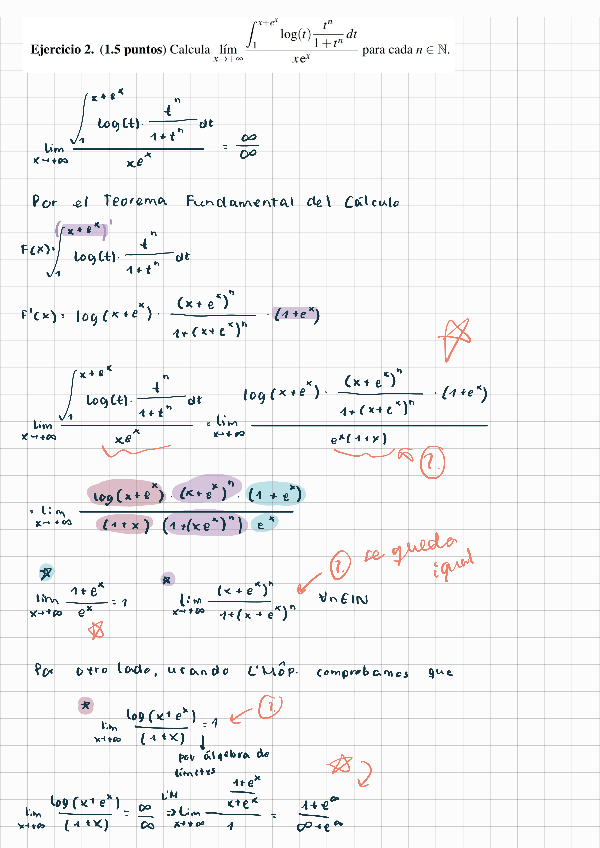 Ejercicio 2. (1.5 puntos) Calcula lím_{x→+∞} \frac{∫_1^{x+e^x} log(t) \frac{t^n}{1+t^n} dt}{xe^x} para cada n ∈ ℕ.
lim_{x→+∞} \frac{∫_1^{x+e^x} log(t) · \frac{t^n}{1+t^n} dt}{xe^x} = \frac{∞}{∞}
Por el Teorema Fundamental del Cálculo
F(x) = ∫_1^{(x+e^x)'} log(t) · \frac{t^n}{1+t^n} dt
F'(x) = log(x+e^x) · \frac{(x+e^x)^n}{1+(x+e^x)^n} · (1+e^x)
lim_{x→+∞} \frac{∫_1^{x+e^x} log(t) · \frac{t^n}{1+t^n} dt}{xe^x} = lim_{x→+∞} \frac{log(x+e^x) · \frac{(x+e^x)^n}{1+(x+e^x)^n} · (1+e^x)}{e^x(1+x)}
?
= lim_{x→+∞} \frac{log(x+e^x) · (x+e^x)^n · (1+e^x)}{(1+x) (1+(xe^x)^n) e^x}
? se queda igual
lim_{x→+∞} \frac{1+e^x}{e^x} = 1 lim_{x→+∞} \frac{(x+e^x)^n}{1+(x+e^x)^n} ∀n∈ℕ
Por otro lado, usando L'Hôp. comprobamos que
lim_{x→+∞} \frac{log(x+e^x)}{(1+x)} = 1 ?
por álgebra de
límites
lim_{x→+∞} \frac{log(x+e^x)}{(1+x)} = \frac{∞}{∞} ⇒ L'H lim_{x→+∞} \frac{\frac{1+e^x}{x+e^x}}{1} = \frac{1+e^∞}{∞+e^∞}